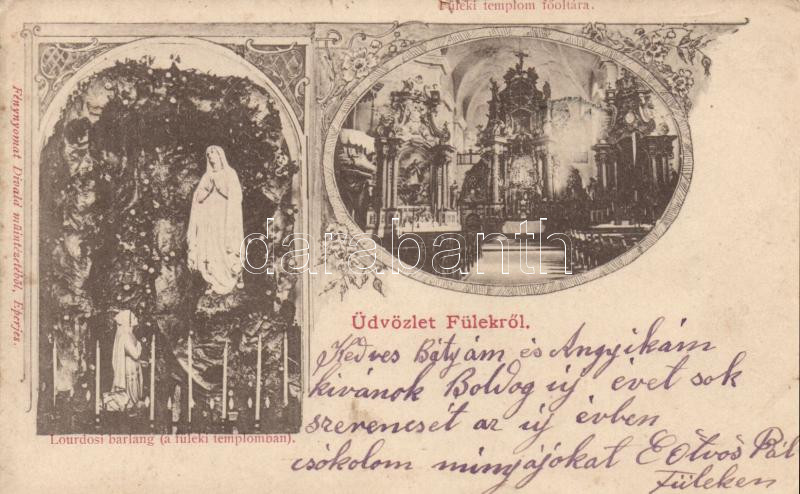 Füleki templom főoltára.
Fénynyomat Divald műintézetéből, Eperjes.
darabanth
Lourdosi barlang (a füleki templomban).
Üdvözlet Fülekről.
Kedves Bátyám és Angyikám
kivánok Boldog új évet sok
szerencsét az új évben
csókolom minyájókat Eötvös Pál
Füleken